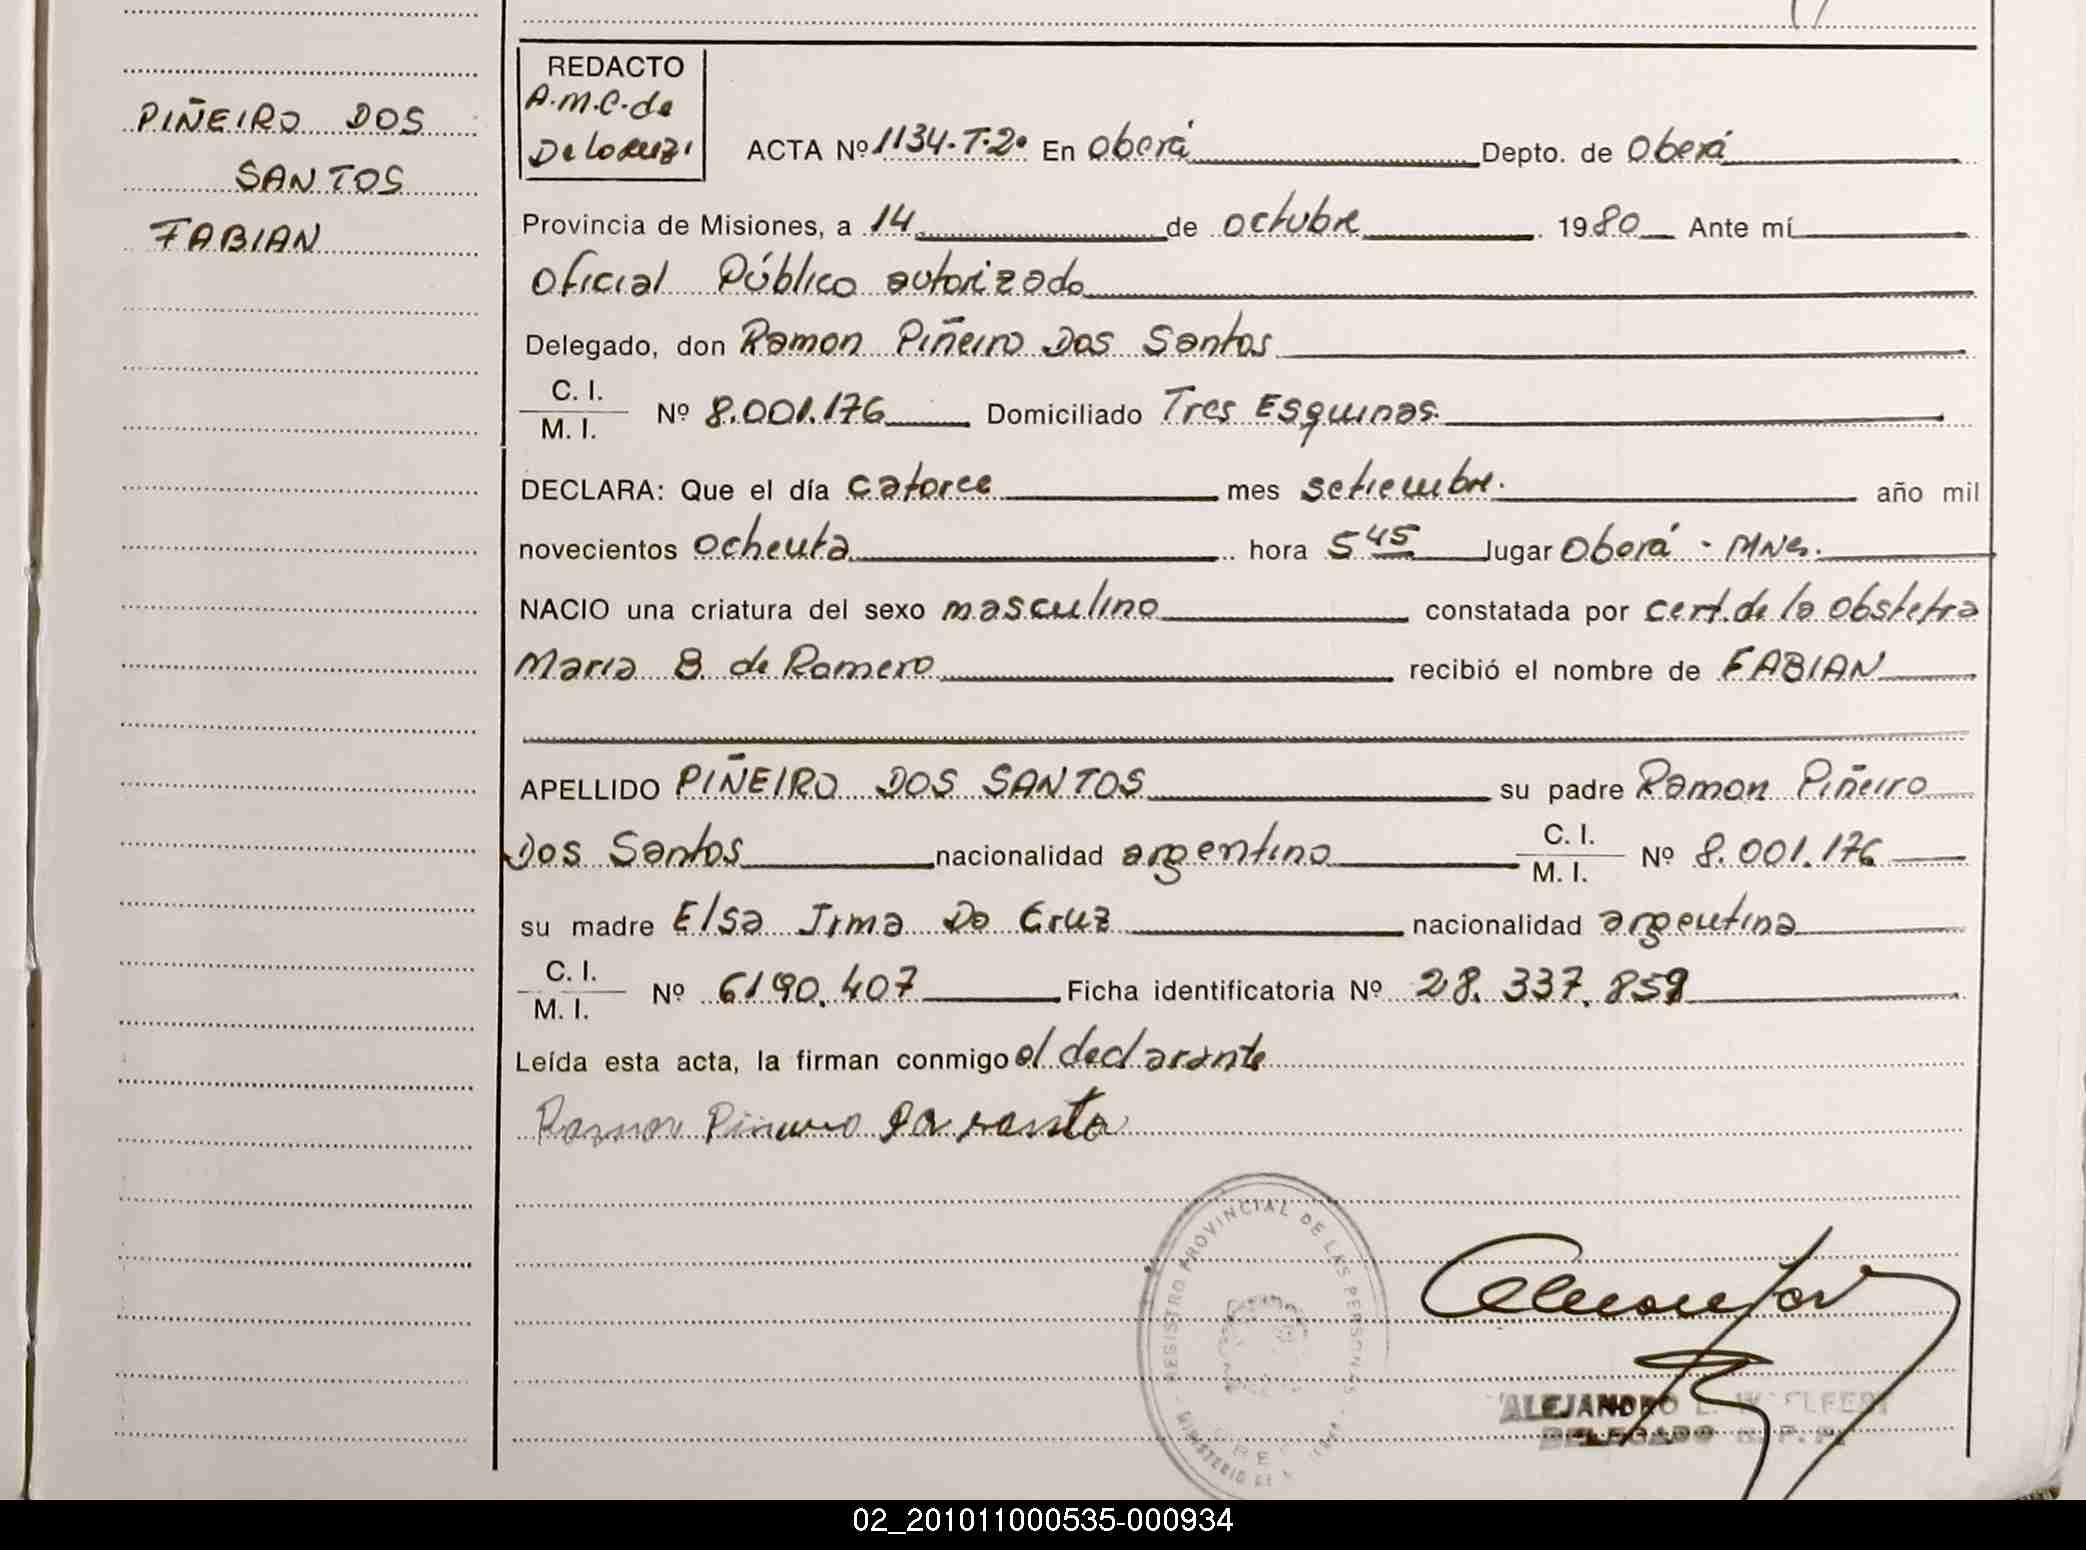 PIÑEIRO DOS
SANTOS
FABIAN
REDACTO
A.M.C. de
Delorenzi
ACTA Nº 1134-T-2º En Oberá Depto. de Oberá
Provincia de Misiones, a 14 de octubre 1980 Ante mí
Oficial Público autorizado
Delegado, don Ramon Piñeiro Dos Santos
C. I.
M. I. Nº 8.001.176 Domiciliado Tres Esquinas.
DECLARA: Que el día catorce mes setiembre. año mil
novecientos ochenta hora 5 45 lugar Oberá - Mnes.
NACIO una criatura del sexo masculino constatada por cert. de la obstetra
Maria B. de Romero recibió el nombre de FABIAN
APELLIDO PIÑEIRO DOS SANTOS su padre Ramon Piñeiro
Dos Santos nacionalidad argentino C. I.
M. I. Nº 8.001.176
su madre Elsa Irma Da Cruz nacionalidad argentina
C. I.
M. I. Nº 6190.407 Ficha identificatoria Nº 28.337.859
Leída esta acta, la firman conmigo el declarante
Ramon Piñeiro
REGISTRO PROVINCIAL DE LAS PERSONAS
MINISTERIO DE
ALEJANDRO L. W.
DELEGADO R. P. P.
02_201011000535-000934